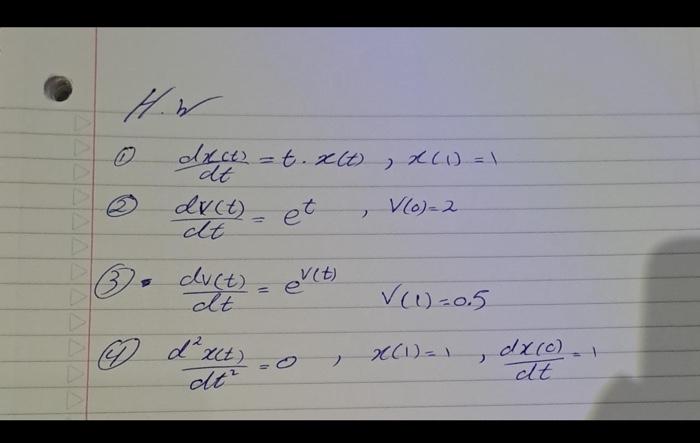 H.W
① dx(t)/dt = t . x(t) , x(1) = 1
② dv(t)/dt = e^t , V(0) = 2
③ • dv(t)/dt = e^V(t) V(1) = 0.5
④ d²x(t)/dt² = 0 , x(1) = 1 , dx(0)/dt = 1